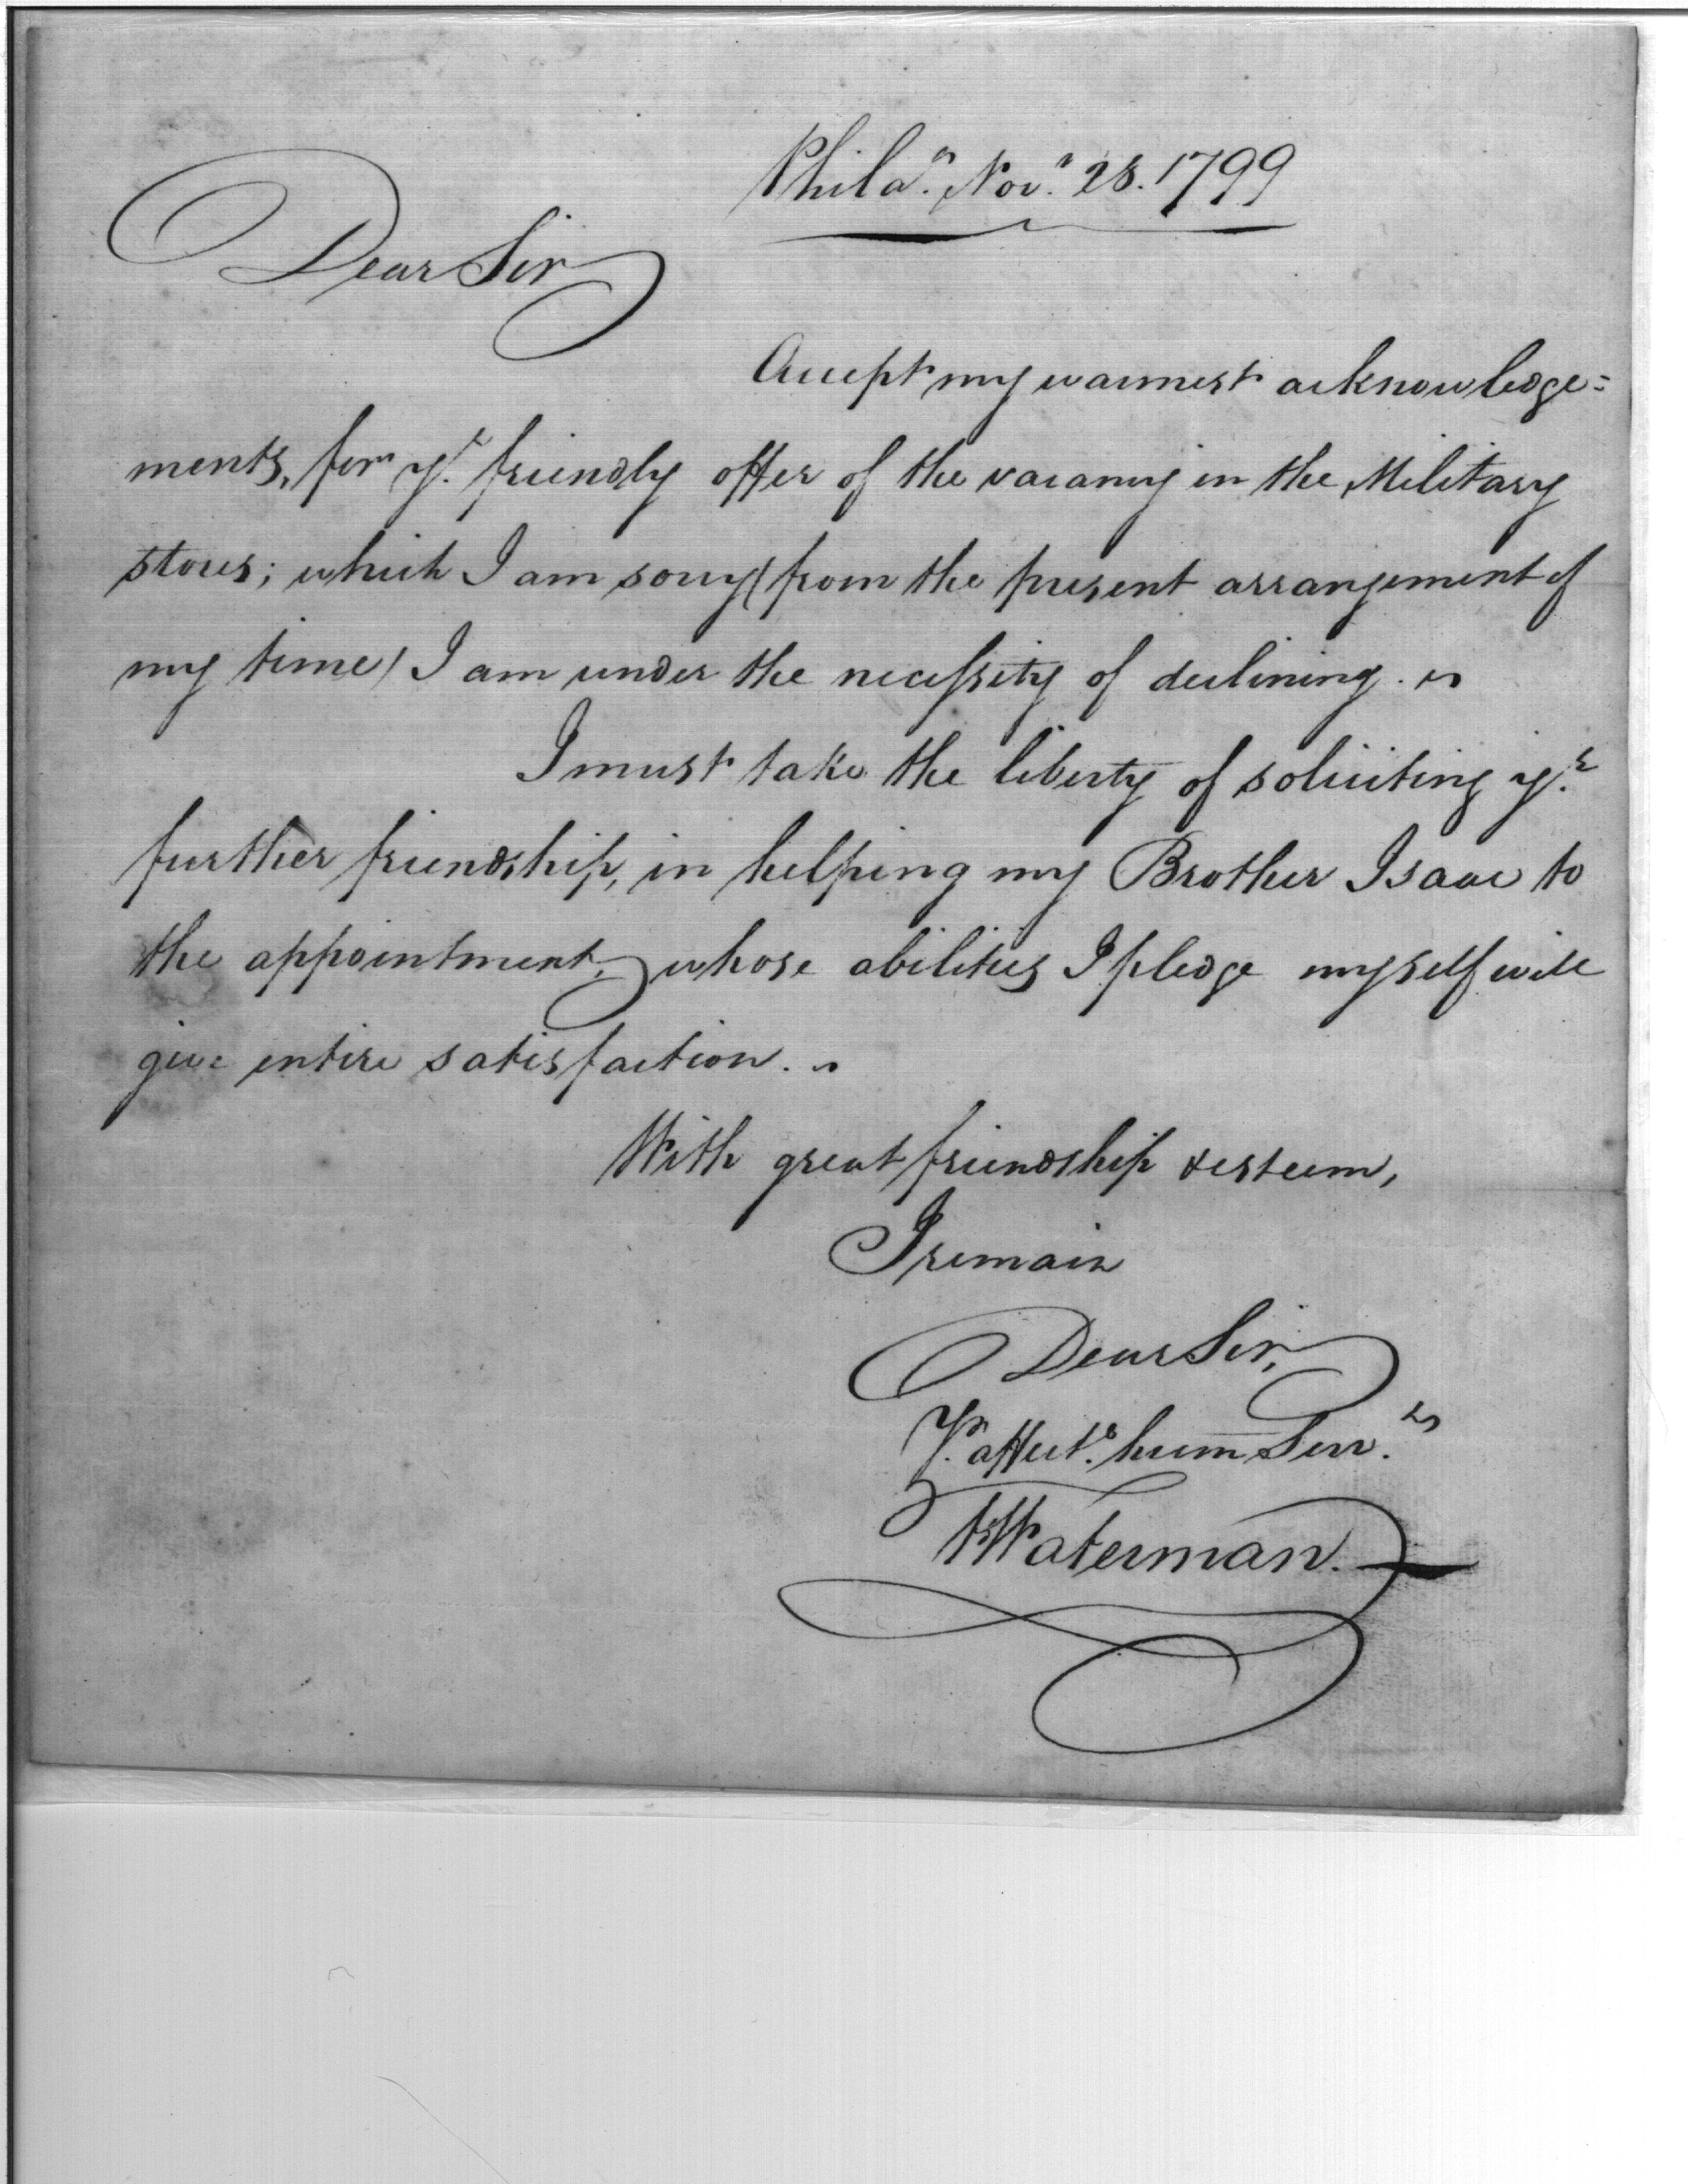 Philaᵃ. Novʳ. 28. 1799
Dear Sir
Accept my warmest acknowledge=
ments, for yʳ. friendly offer of the vacancy in the Military
stores; which I am sorry (from the present arrangement of
my time) I am under the necessity of declining.
I must take the liberty of soliciting yʳ.
further friendship, in helping my Brother Isaac to
the appointment, whose abilities I pledge myself will
give entire satisfaction.
With great friendship & esteem,
I remain
Dear Sir,
Yʳ. affectᵉ. hum Servᵗ.
Waterman.